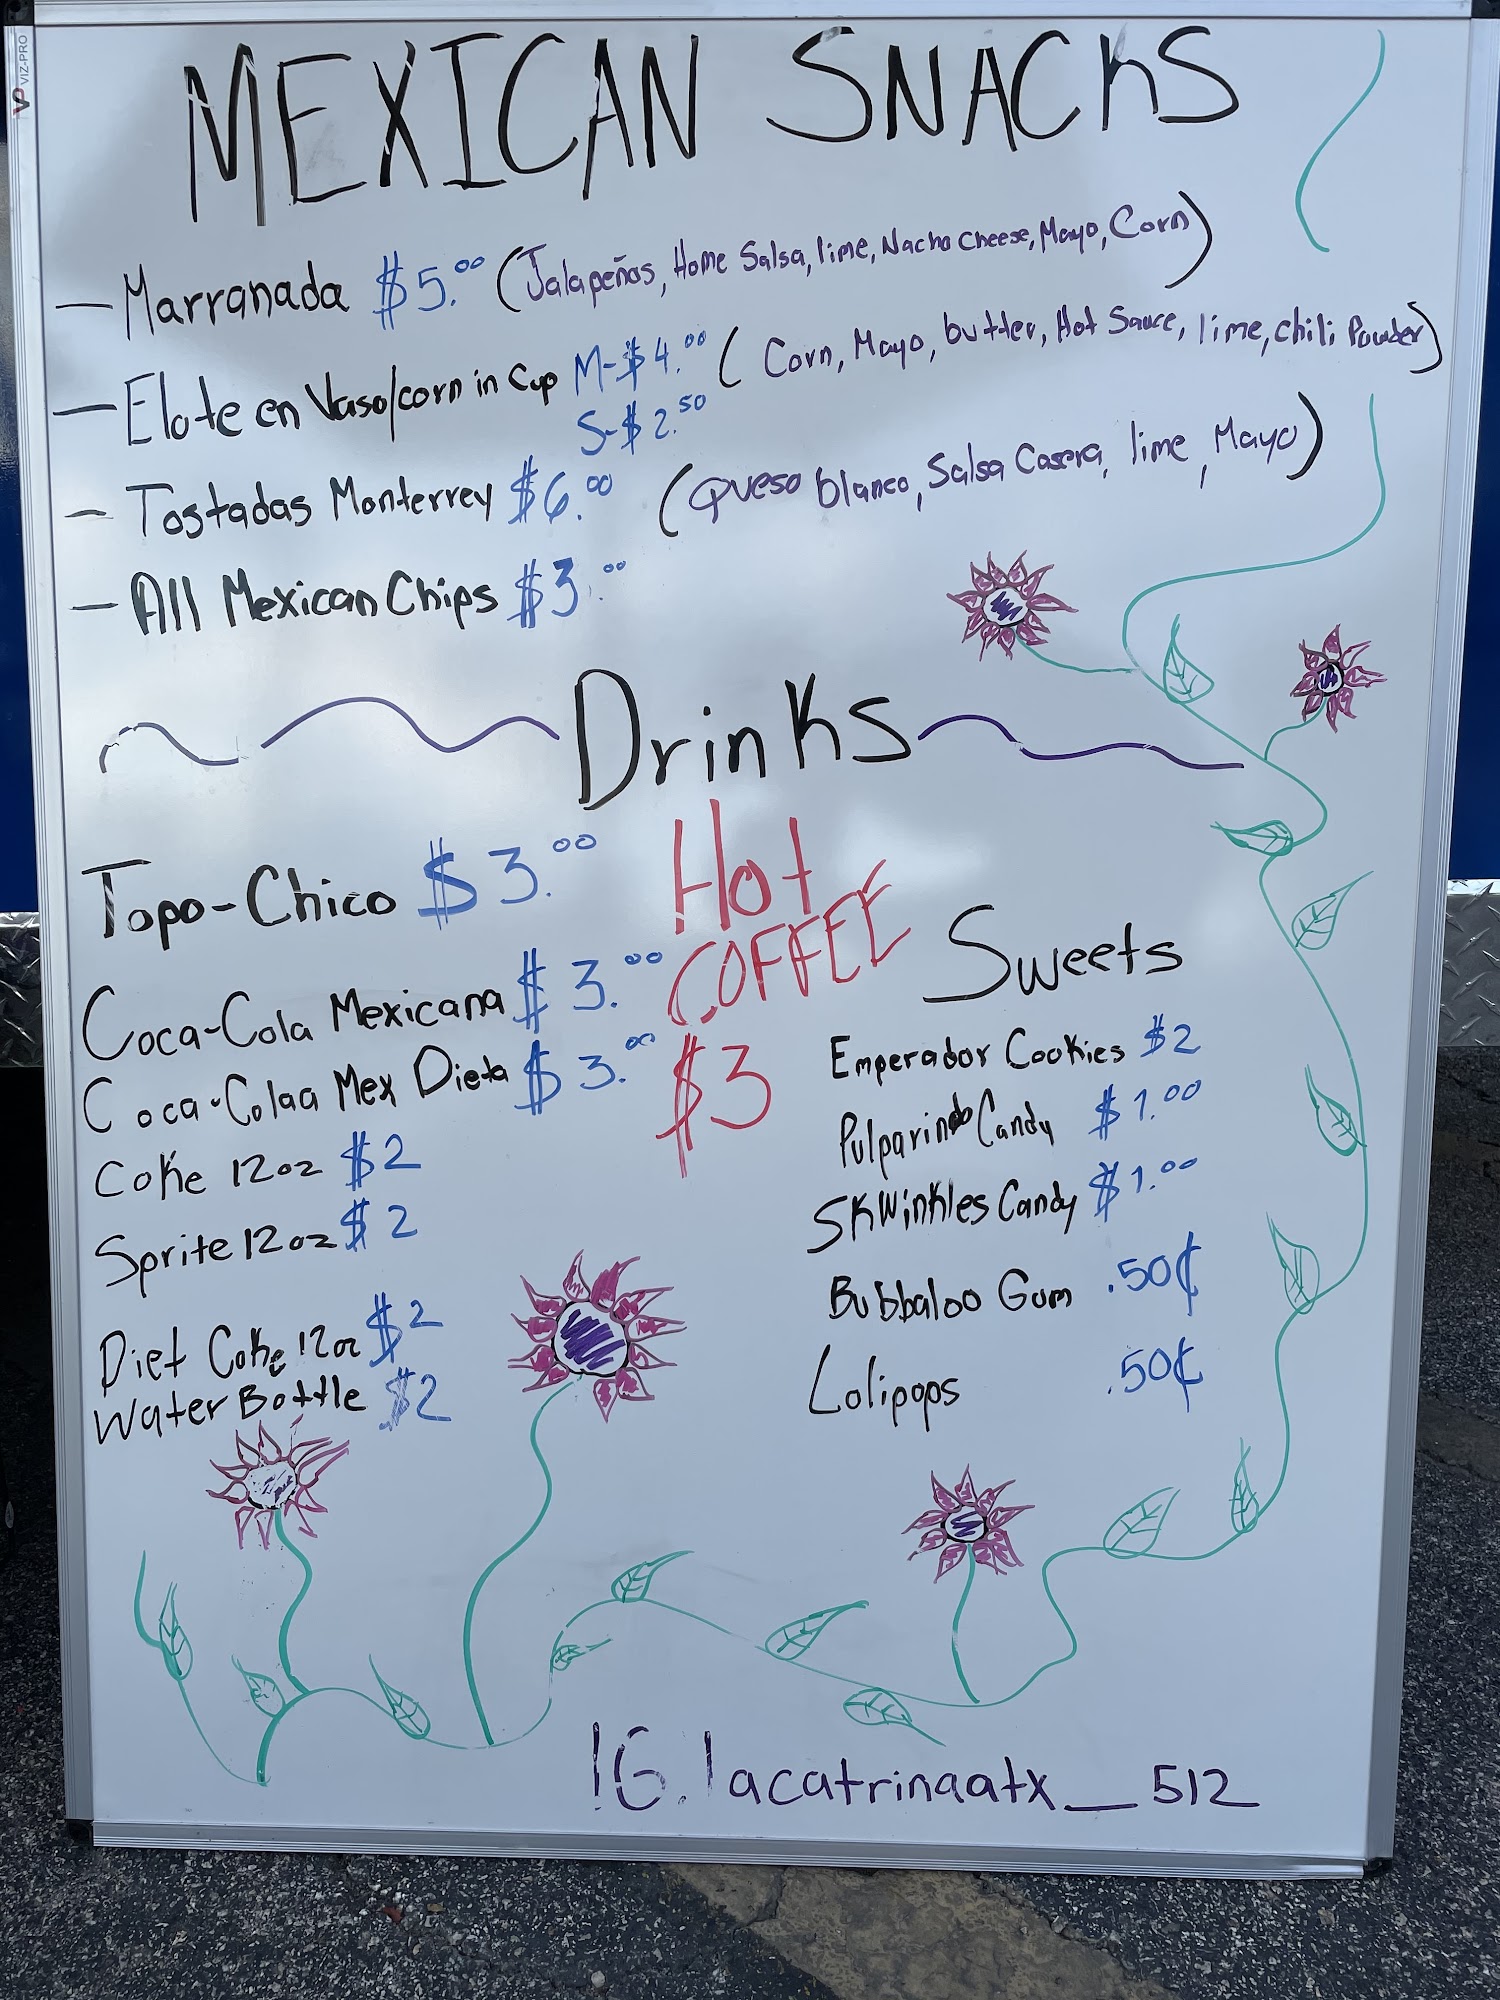 VP VIZ-PRO
MEXICAN SNACKS
— Marranada $5.00 (Jalapeños, Home Salsa, lime, Nacho Cheese, Mayo, Corn)
— Elote en Vaso/corn in Cup M-$4.00 (Corn, Mayo, butter, Hot Sauce, lime, chili Powder)
S-$2.50
— Tostadas Monterrey $6.00 (Queso blanco, Salsa Casera, lime, Mayo)
— All Mexican Chips $3.00
Drinks
Topo-Chico $3.00
Coca-Cola Mexicana $3.00
Coca-Colaa Mex Dieta $3.00
Coke 12oz $2
Sprite 12oz $2
Diet Coke 12oz $2
Water Bottle $2
Hot
COFFEE
$3
Sweets
Emperador Cookies $2
Pulparindo Candy $1.00
Skwinkles Candy $1.00
Bubbaloo Gum .50¢
Lolipops .50¢
IG. lacatrinaatx_512